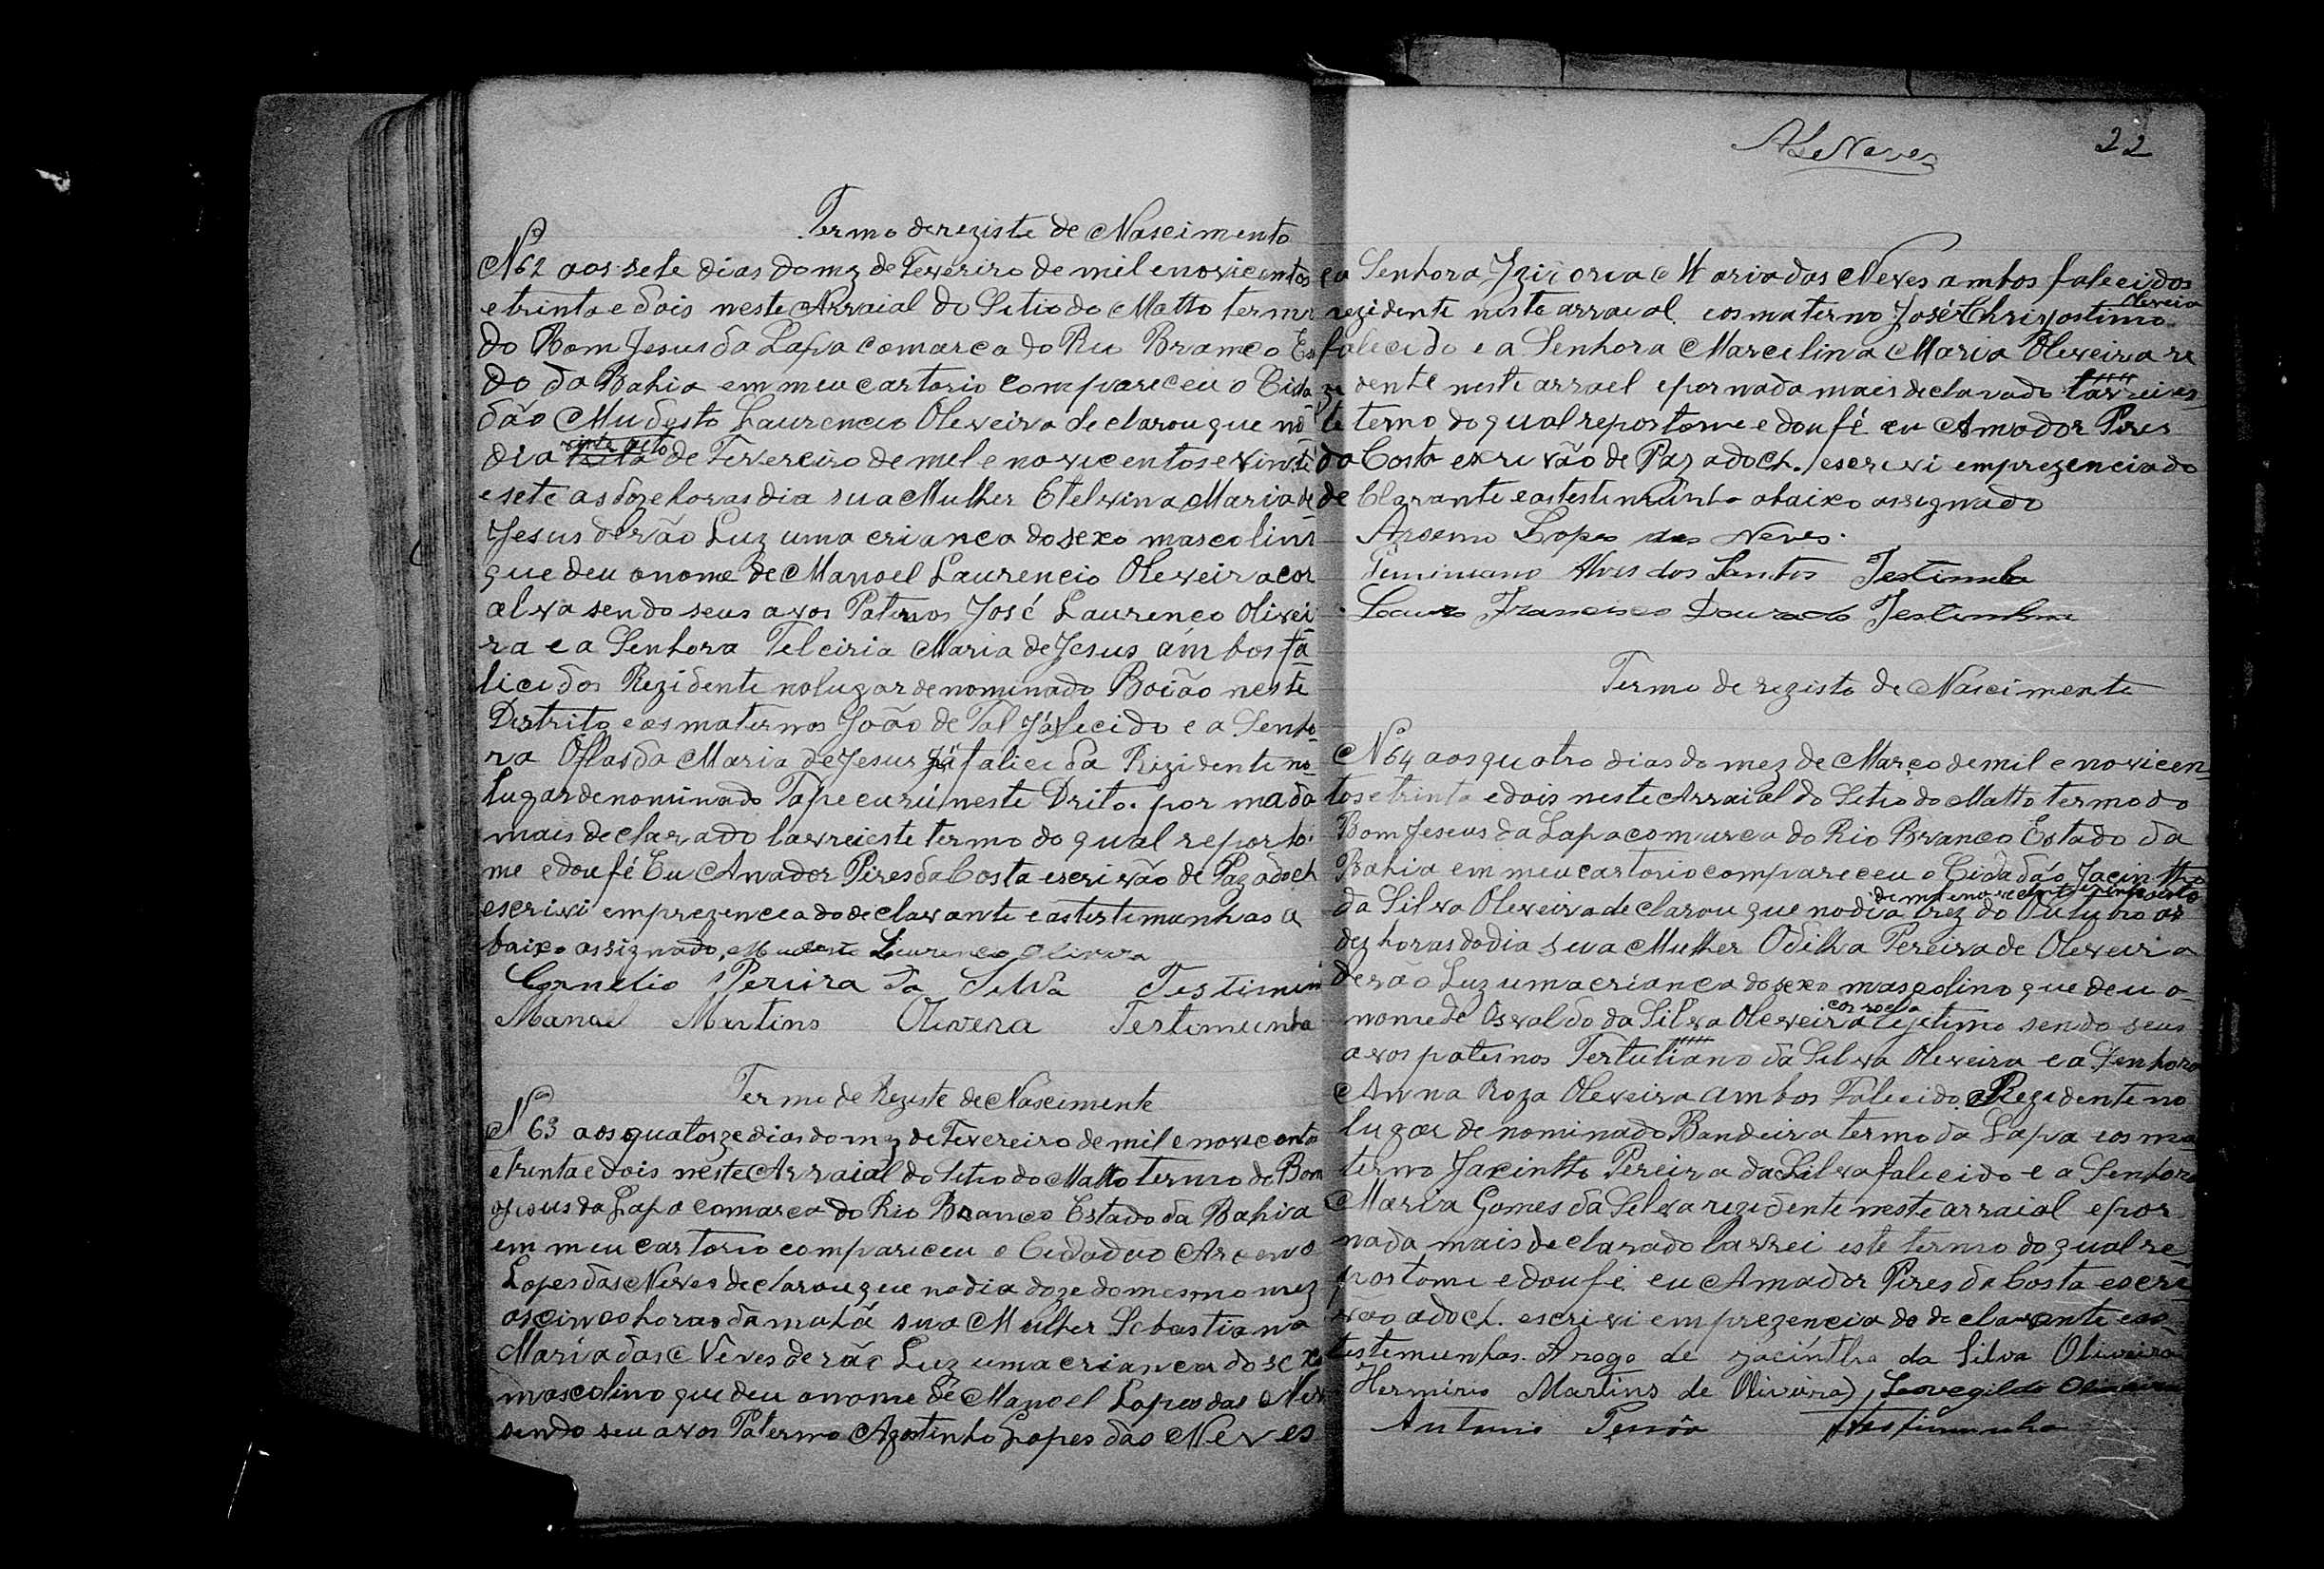 Termo de registe de Nascimento
Nº 62 aos sete dias do mz de Fevereiro de mil e novicentos
e trinta e dois neste Arraial do Sitio do Matto termo
do Bom Jesus da Lapa comarca do Rio Branco Es
do da Bahia em meu cartorio compareceu o Cida
dão Mudesto Laurencio Oleveira declarou que no
dia vinte oito de Fevereiro de mel e novicentos e vinte
e sete as doze horas dia sua Mulher Etelvina Maria de
Jesus derão Luz uma crianca do sexo mascolino
que deu o nome de Manoel Laurencio Oleveira cor
alva sendo seus avos Paternos José Laurenco Olivei
ra e a Senhora Telciria Maria de Jesus ambos fa
licidos Rezidente no lugar denominado Boião neste
Destrito e os maternos João de Tal já falecido e a Senho
ra Maria de Jesus já falicida Rezidente no
lugar denominado Tapecurú neste Drito. por nada
mais declarado lavrei este termo do qual reporto
me e dou fé Eu Amador Pires da Costa escrivão de Paz adoch
escrivi em prezencea do declarante e as testemunhas a
baixo assignado, Mudesto Laurenco Olivera
Cornelio Pereira da Silva Testimun
Manoel Martins Olivera Testimunha
Termo de Registe de Nascimente
Nº 63 aos quatorze dias do mz de Fevereiro de mil e novecento
e trinta e dois neste Arraial do Sitio do Matto termo do Bom
Jesus da Lapa comarca do Rio Branco Estado da Bahia
em meu cartorio compareceu o Cidadao Arceno
Lopes das Neves declarou que no dia doze do mesmo mez
as cinco horas da mahã sua Mulher Sebastiana
Maria das Neves derão Luz uma crianca do sexo
mascolino que deu o nome de Manoel Lopes das Nev
sendo seu avos Paterno Agostinho Lopes das Neves
ALNeves
22
e a Senhora Maria das Neves ambos falecidos
rezidente neste arraial e os materno José Chrisostimo Oleveira
falecido e a Senhora Marcelina Maria Oleveira re
zi dente neste arrael e por nada mais declarado lavrei es
te termo do qual reportome e dou fé eu Amador Pires
da Costa escrivão de Paz adoch. escrevi em prezencia do
de Clarante e as testemunha abaixo assegnado
Arsenio Lopes das Neves.
Alves dos Santos Testimuha
Lauro Francisco Dourado Testimunha
Termo de registo de Nascimente
Nº 64 aos quatro dias do mez de Março de mil e novicen
tos e trinta e dois neste Arraial do Sitio do Matto termo do
Bom Jeseus da Lapa comarca do Rio Branco Estado da
Bahia em meu cartorio compareceu o Cidadão Jacintho
da Silva Oleveira declarou que no dia trez do Outubro de mil e novecento e vinte oito as
dez horas do dia sua Mulher Odilha Pereira de Oleveira
derão Luz uma crianca do sexo mascolino que deu o
nome de Osvaldo da Silva Oleveira cor rocha lejetimo sendo seus
avos paternos Tertuliano da Silva Oleveira e a Senhora
Anna Roza Oleveira ambos Falicido Rezidente no
lugar denominado Bandeira termo da Lapa e os ma
terno Jacintho Pereira da Silva falicido e a Senhora
Maria Gomes da Selva rezidente neste arraial e por
nada mais declarado lavrei este termo do qual re
portome e dou fe eu Amador Pires da Costa escri
vão adoch. escrivi em prezencia do declarante e as
testemunhas. Arogo de Jacintho da Silva Oliveira
Hermirio Martins de Oliveira, Leovegildo Oliveira
Antonio Testimunha